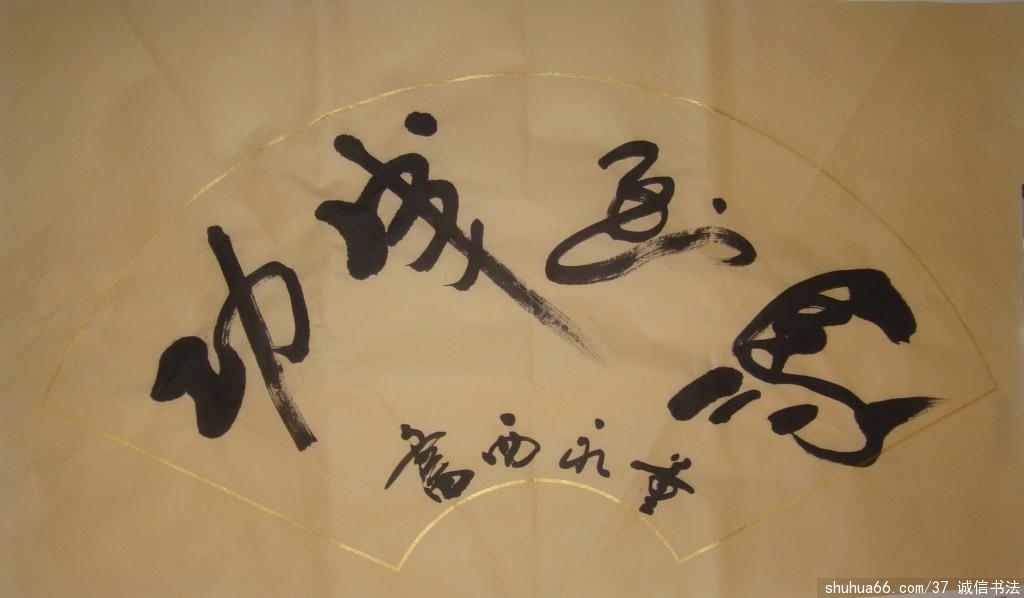 馬到成功
shuhua66.com/37 诚信书法